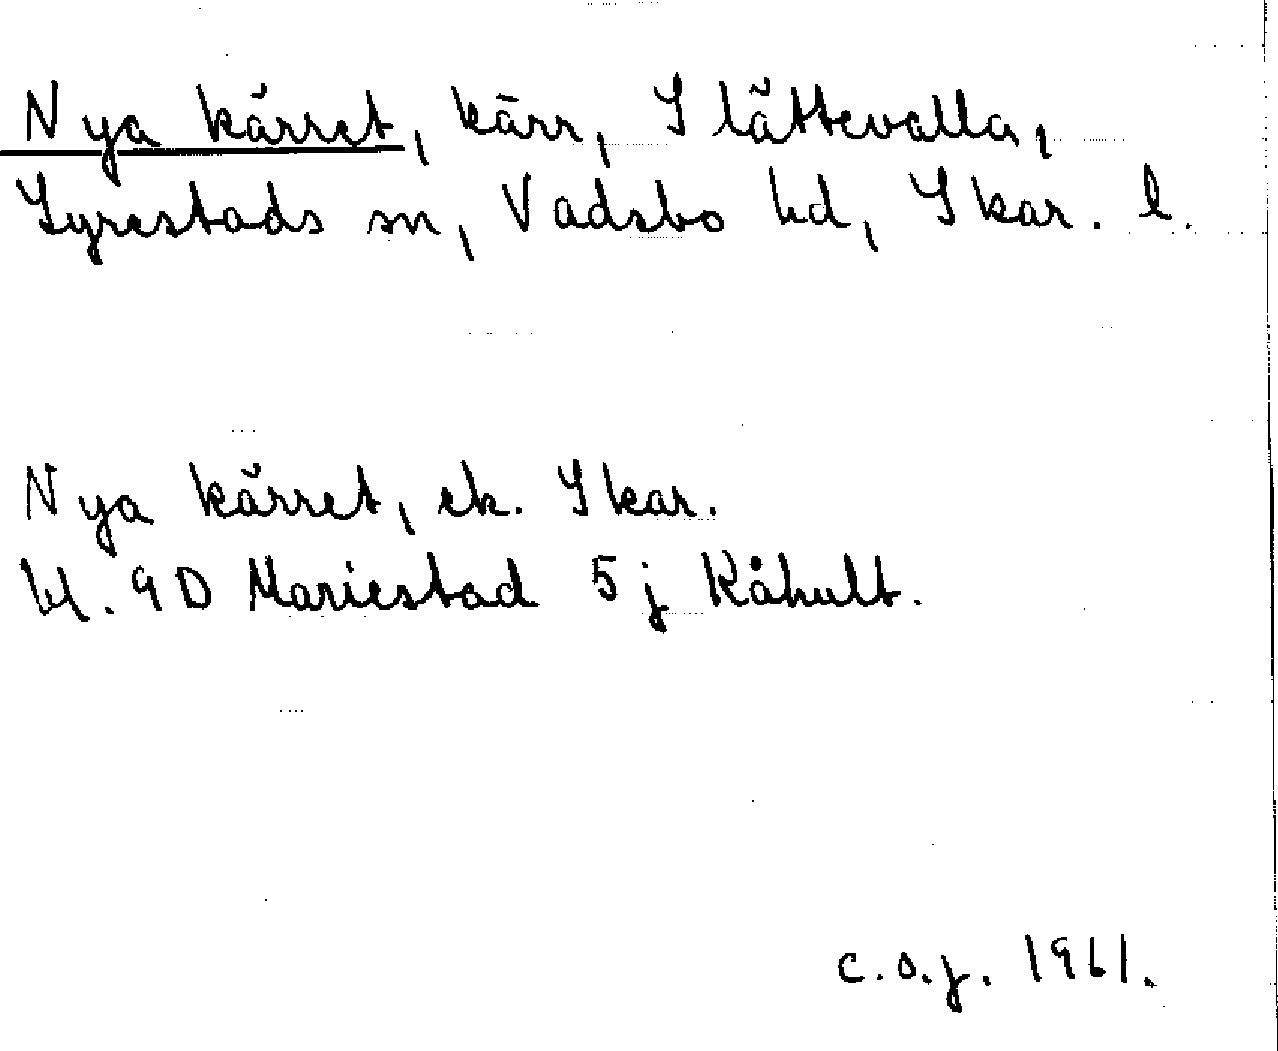 Nya kärret, kärr, Slättevalla,
Lyrestads sn, Vadsbo hd, Skar. l.
Nya kärret, ek. Skar.
bl. 9D Mariestad 5j Råhult.
C.O.J. 1961.